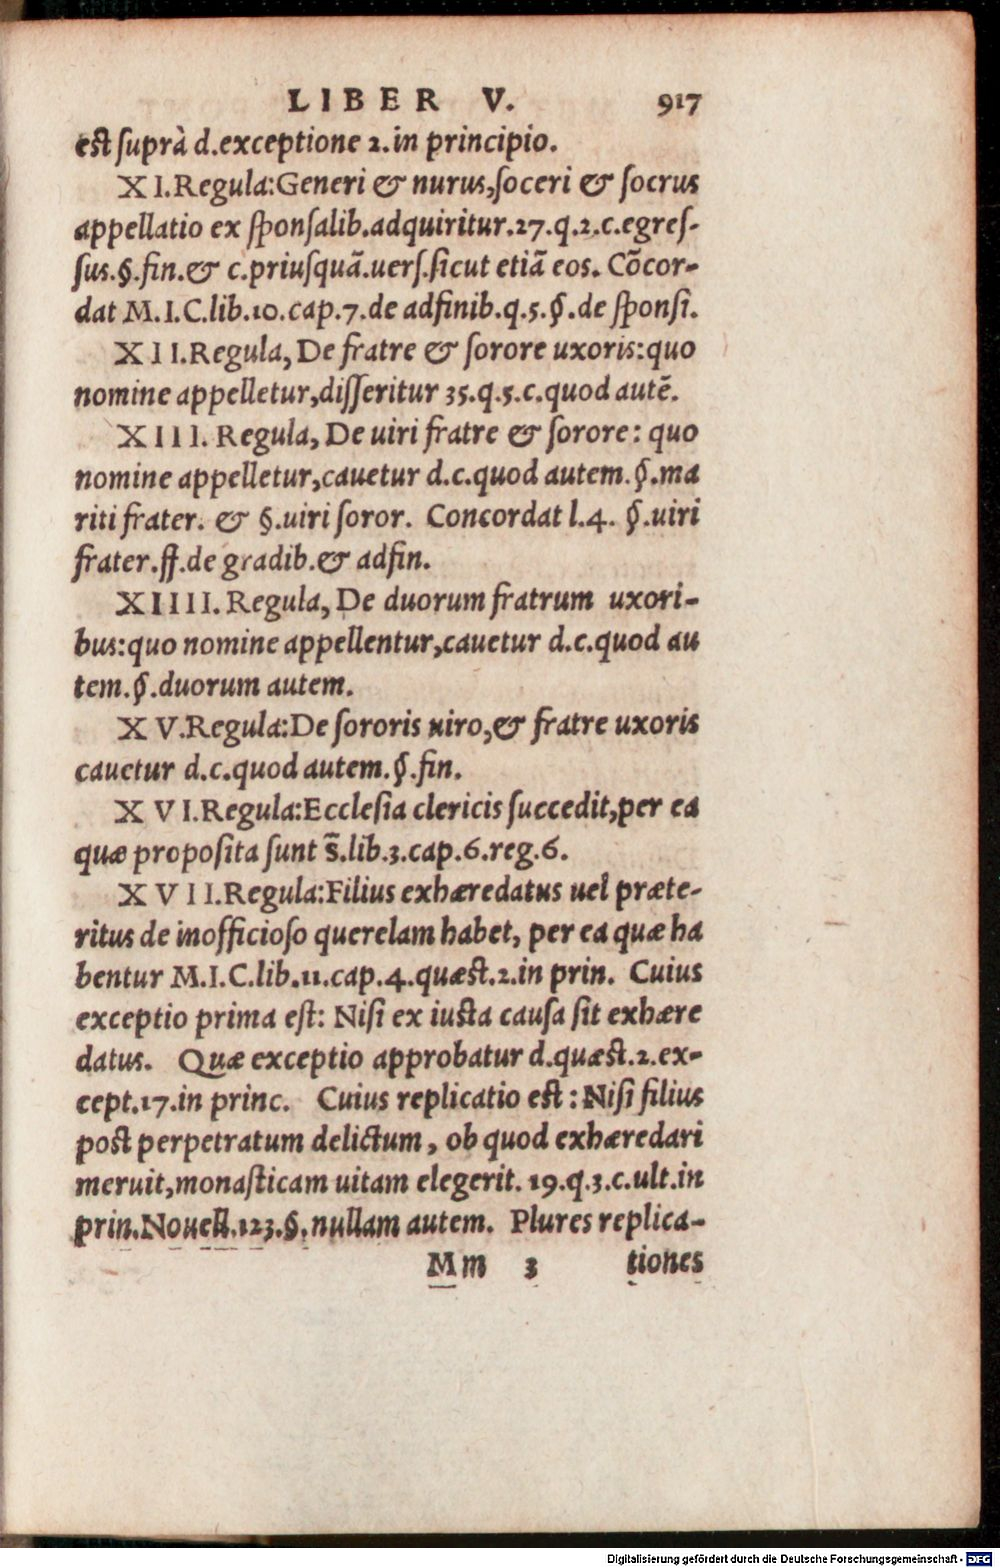 LIBER V. 917
est suprà d.exceptione 2.in principio.
XI.Regula:Generi & nurus,soceri & socrus
appellatio ex sponsalib.adquiritur.27.q.2.c.egres-
sus.§.fin.& c.priusquã.uers.sicut etiã eos. Cõcor-
dat M.I.C.lib.10.cap.7.de adfinib.q.5.§.de sponsi.
XII.Regula, De fratre & sorore uxoris:quo
nomine appelletur,disseritur 35.q.5.c.quod autẽ.
XIII. Regula, De uiri fratre & sorore: quo
nomine appelletur,cauetur d.c.quod autem.§.ma
riti frater. & §.uiri soror. Concordat l.4. §.uiri
frater.ff.de gradib.& adfin.
XIIII. Regula, De duorum fratrum uxori-
bus:quo nomine appellentur,cauetur d.c.quod au
tem.§.duorum autem.
XV.Regula:De sororis uiro,& fratre uxoris
cauetur d.c.quod autem.§.fin.
XVI.Regula:Ecclesia clericis succedit,per ea
quæ proposita sunt s̃.lib.3.cap.6.reg.6.
XVII.Regula:Filius exhæredatus uel præte-
ritus de inofficioso querelam habet, per ea quæ ha
bentur M.I.C.lib.11.cap.4.quæst.2.in prin. Cuius
exceptio prima est: Nisi ex iusta causa sit exhære
datus. Quæ exceptio approbatur d.quæst.2.ex-
cept.17.in princ. Cuius replicatio est: Nisi filius
post perpetratum delictum, ob quod exhæredari
meruit,monasticam uitam elegerit. 19.q.3.c.ult.in
prin.Nouell.123.§.nullam autem. Plures replica-
Mm 3 tiones
Digitalisierung gefördert durch die Deutsche Forschungsgemeinschaft - DFG